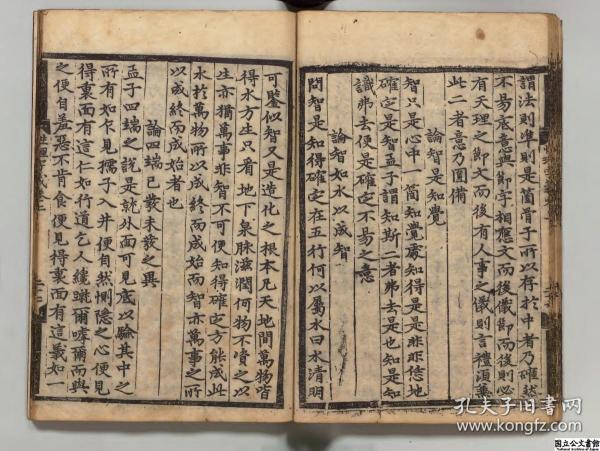 謂法則準則是箇骨子所以存於中者乃確然
不易底意與節字相應文而後儀節而後則必
有天理之節文而後有人事之儀則言禮須兼
此二者意乃圓備
論智是知覺
智只是心中一箇知覺處知得是是非非恁地
確定是智孟子謂知斯二者弗去是也知是知
識弗去便是確定不易之意
論智如水以成智
問智是知得確定在五行何以屬水曰水清明
可鑒似智又是造化之根本凡天地間萬物皆
得水方生只看地下泉脉滋潤何物不資之以
生亦猶萬事非智不可便知得確定方能成此
水於萬物所以成終而成始而智亦萬事之所
以成終而成始者也
論四端已發未發之異
孟子四端之說是就外面可見底以驗其中之
所有如乍見孺子入井便自然惻隱之心便見
得裏面有這仁如行道乞人纔蹴爾嘑爾而與
之便自羞惡不肯食便見得裏面有這義如一
孔夫子旧书网
www.kongfz.com
国立公文書館
National Archives of Japan